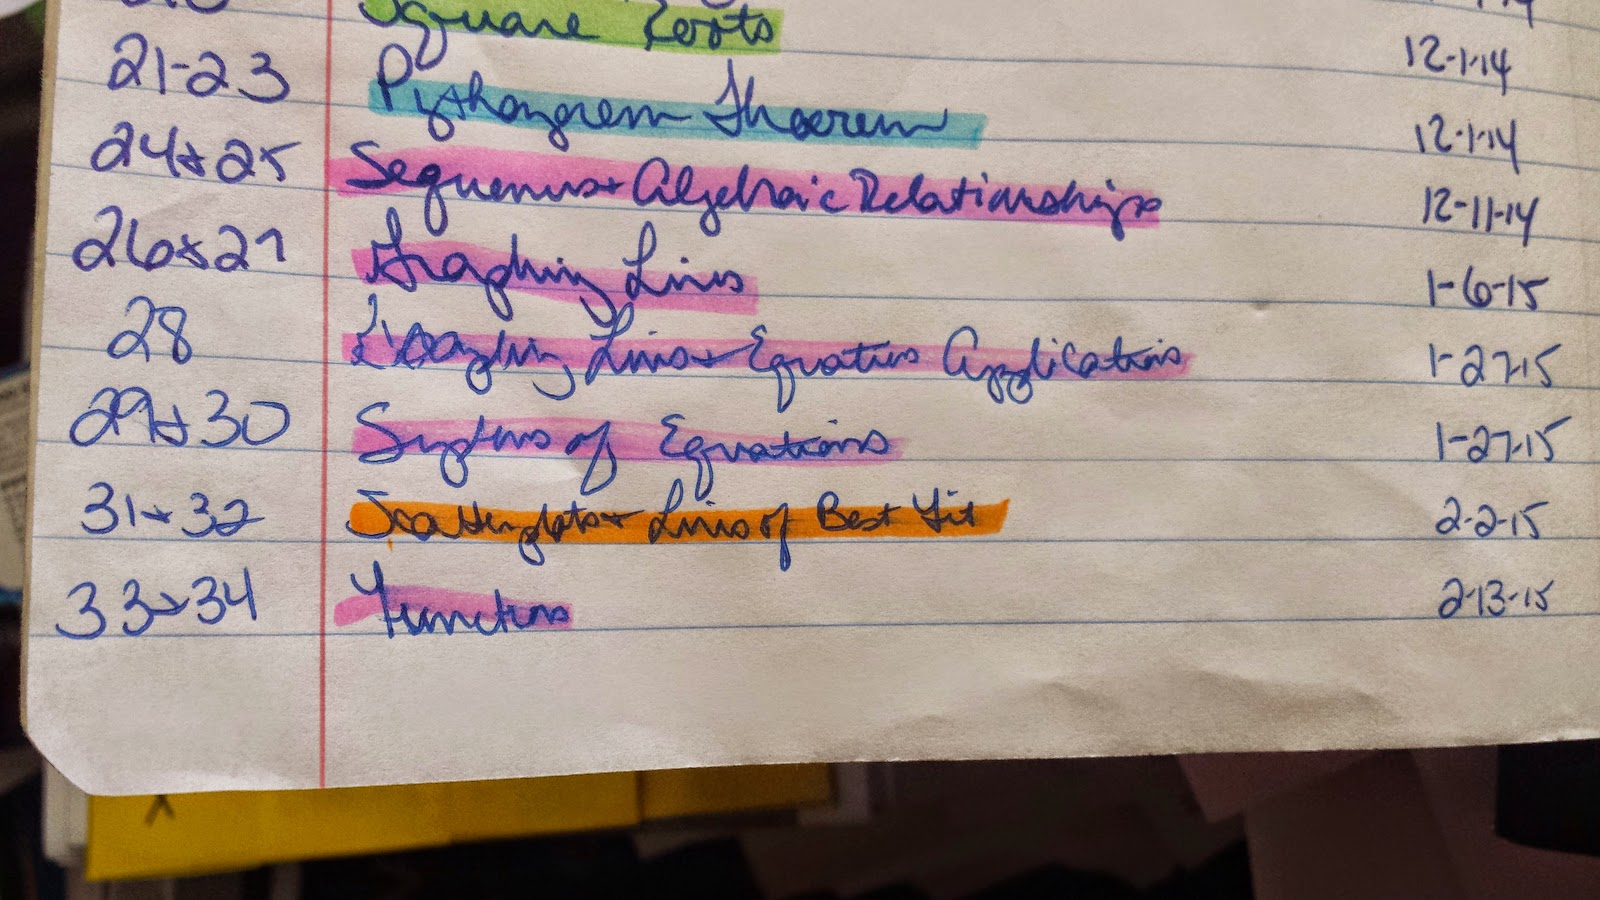 Square Roots
21-23 Pythagorem Theorem 12-1-14
24+25 Sequences + Algebraic Relationships 12-1-14
26+27 Graphing Lines 12-11-14
28 Graphing Lines + Equations Applications 1-6-15
29+30 Systems of Equations 1-27-15
31+32 Scatterplots + Lines of Best Fit 1-27-15
33+34 Functions 2-2-15
2-13-15